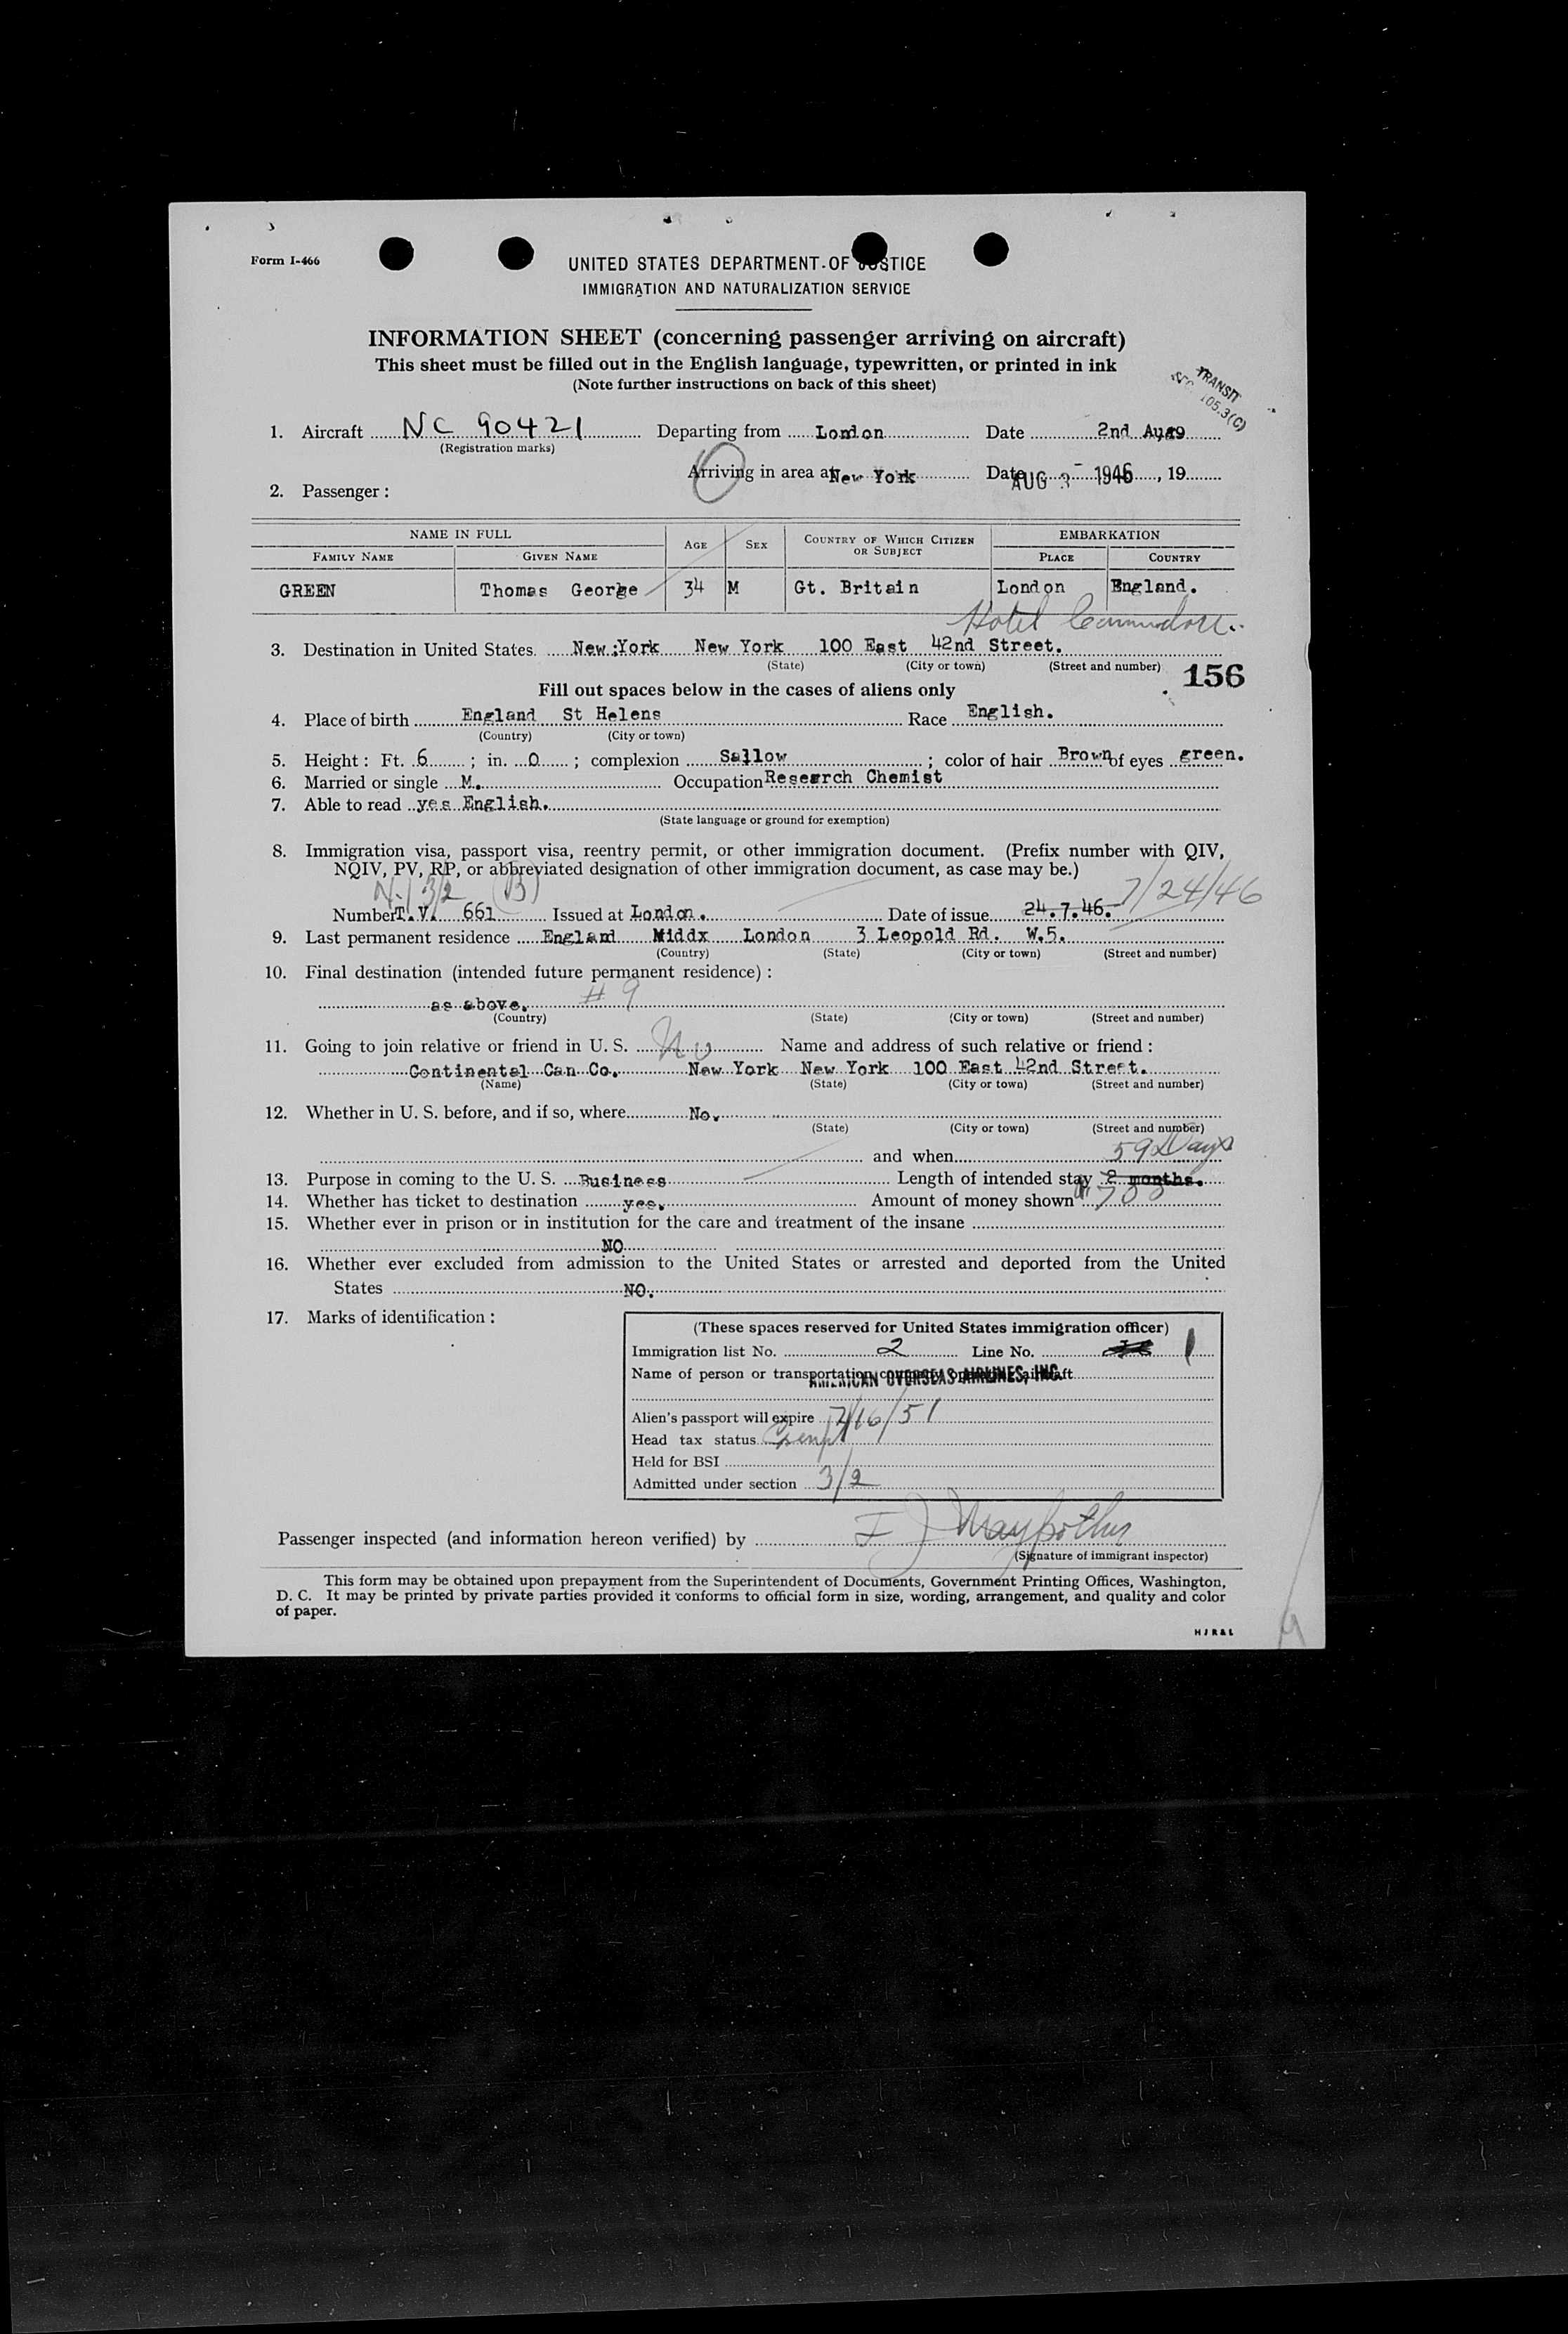 Form I-466
UNITED STATES DEPARTMENT OF JUSTICE
IMMIGRATION AND NATURALIZATION SERVICE
INFORMATION SHEET (concerning passenger arriving on aircraft)
This sheet must be filled out in the English language, typewritten, or printed in ink
(Note further instructions on back of this sheet)
TRANSIT
105.3(C)
1. Aircraft NC 90421 Departing from London Date 2nd Aug
(Registration marks)
Arriving in area at New York Date AUG 3 - 1946, 19
2. Passenger:
NAME IN FULL AGE SEX COUNTRY OF WHICH CITIZEN OR SUBJECT EMBARKATION
FAMILY NAME GIVEN NAME PLACE COUNTRY
GREEN Thomas George 34 M Gt. Britain London England.
Hotel Commodore
3. Destination in United States New York New York 100 East 42nd Street.
(State) (City or town) (Street and number)
156
Fill out spaces below in the cases of aliens only
4. Place of birth England St Helens Race English.
(Country) (City or town)
5. Height: Ft. 6; in. 0; complexion Sallow; color of hair Brown of eyes green.
6. Married or single M. Occupation Research Chemist
7. Able to read yes English.
(State language or ground for exemption)
8. Immigration visa, passport visa, reentry permit, or other immigration document. (Prefix number with QIV,
NQIV, PV, RP, or abbreviated designation of other immigration document, as case may be.)
3/2 (B) 7/24/46
Number T.V. 661 Issued at London. Date of issue 24.7.46.
9. Last permanent residence England Middx London 3 Leopold Rd. W.5.
(Country) (State) (City or town) (Street and number)
10. Final destination (intended future permanent residence):
as above. # 9
(Country) (State) (City or town) (Street and number)
11. Going to join relative or friend in U. S. No Name and address of such relative or friend:
Continental Can Co. New York New York 100 East 42nd Street.
(Name) (State) (City or town) (Street and number)
12. Whether in U. S. before, and if so, where No.
(State) (City or town) (Street and number)
and when 59 Days
13. Purpose in coming to the U. S. Business Length of intended stay 2 months.
14. Whether has ticket to destination yes. Amount of money shown $700
15. Whether ever in prison or in institution for the care and treatment of the insane
NO
16. Whether ever excluded from admission to the United States or arrested and deported from the United
States NO.
17. Marks of identification:
(These spaces reserved for United States immigration officer)
Immigration list No. 2 Line No. 1
Name of person or transportation company operating aircraft AMERICAN OVERSEAS AIRLINES, INC.
Alien's passport will expire 7/16/51
Head tax status Exempt
Held for BSI
Admitted under section 3/2
Passenger inspected (and information hereon verified) by
(Signature of immigrant inspector)
This form may be obtained upon prepayment from the Superintendent of Documents, Government Printing Offices, Washington,
D. C. It may be printed by private parties provided it conforms to official form in size, wording, arrangement, and quality and color
of paper.
H J R & L